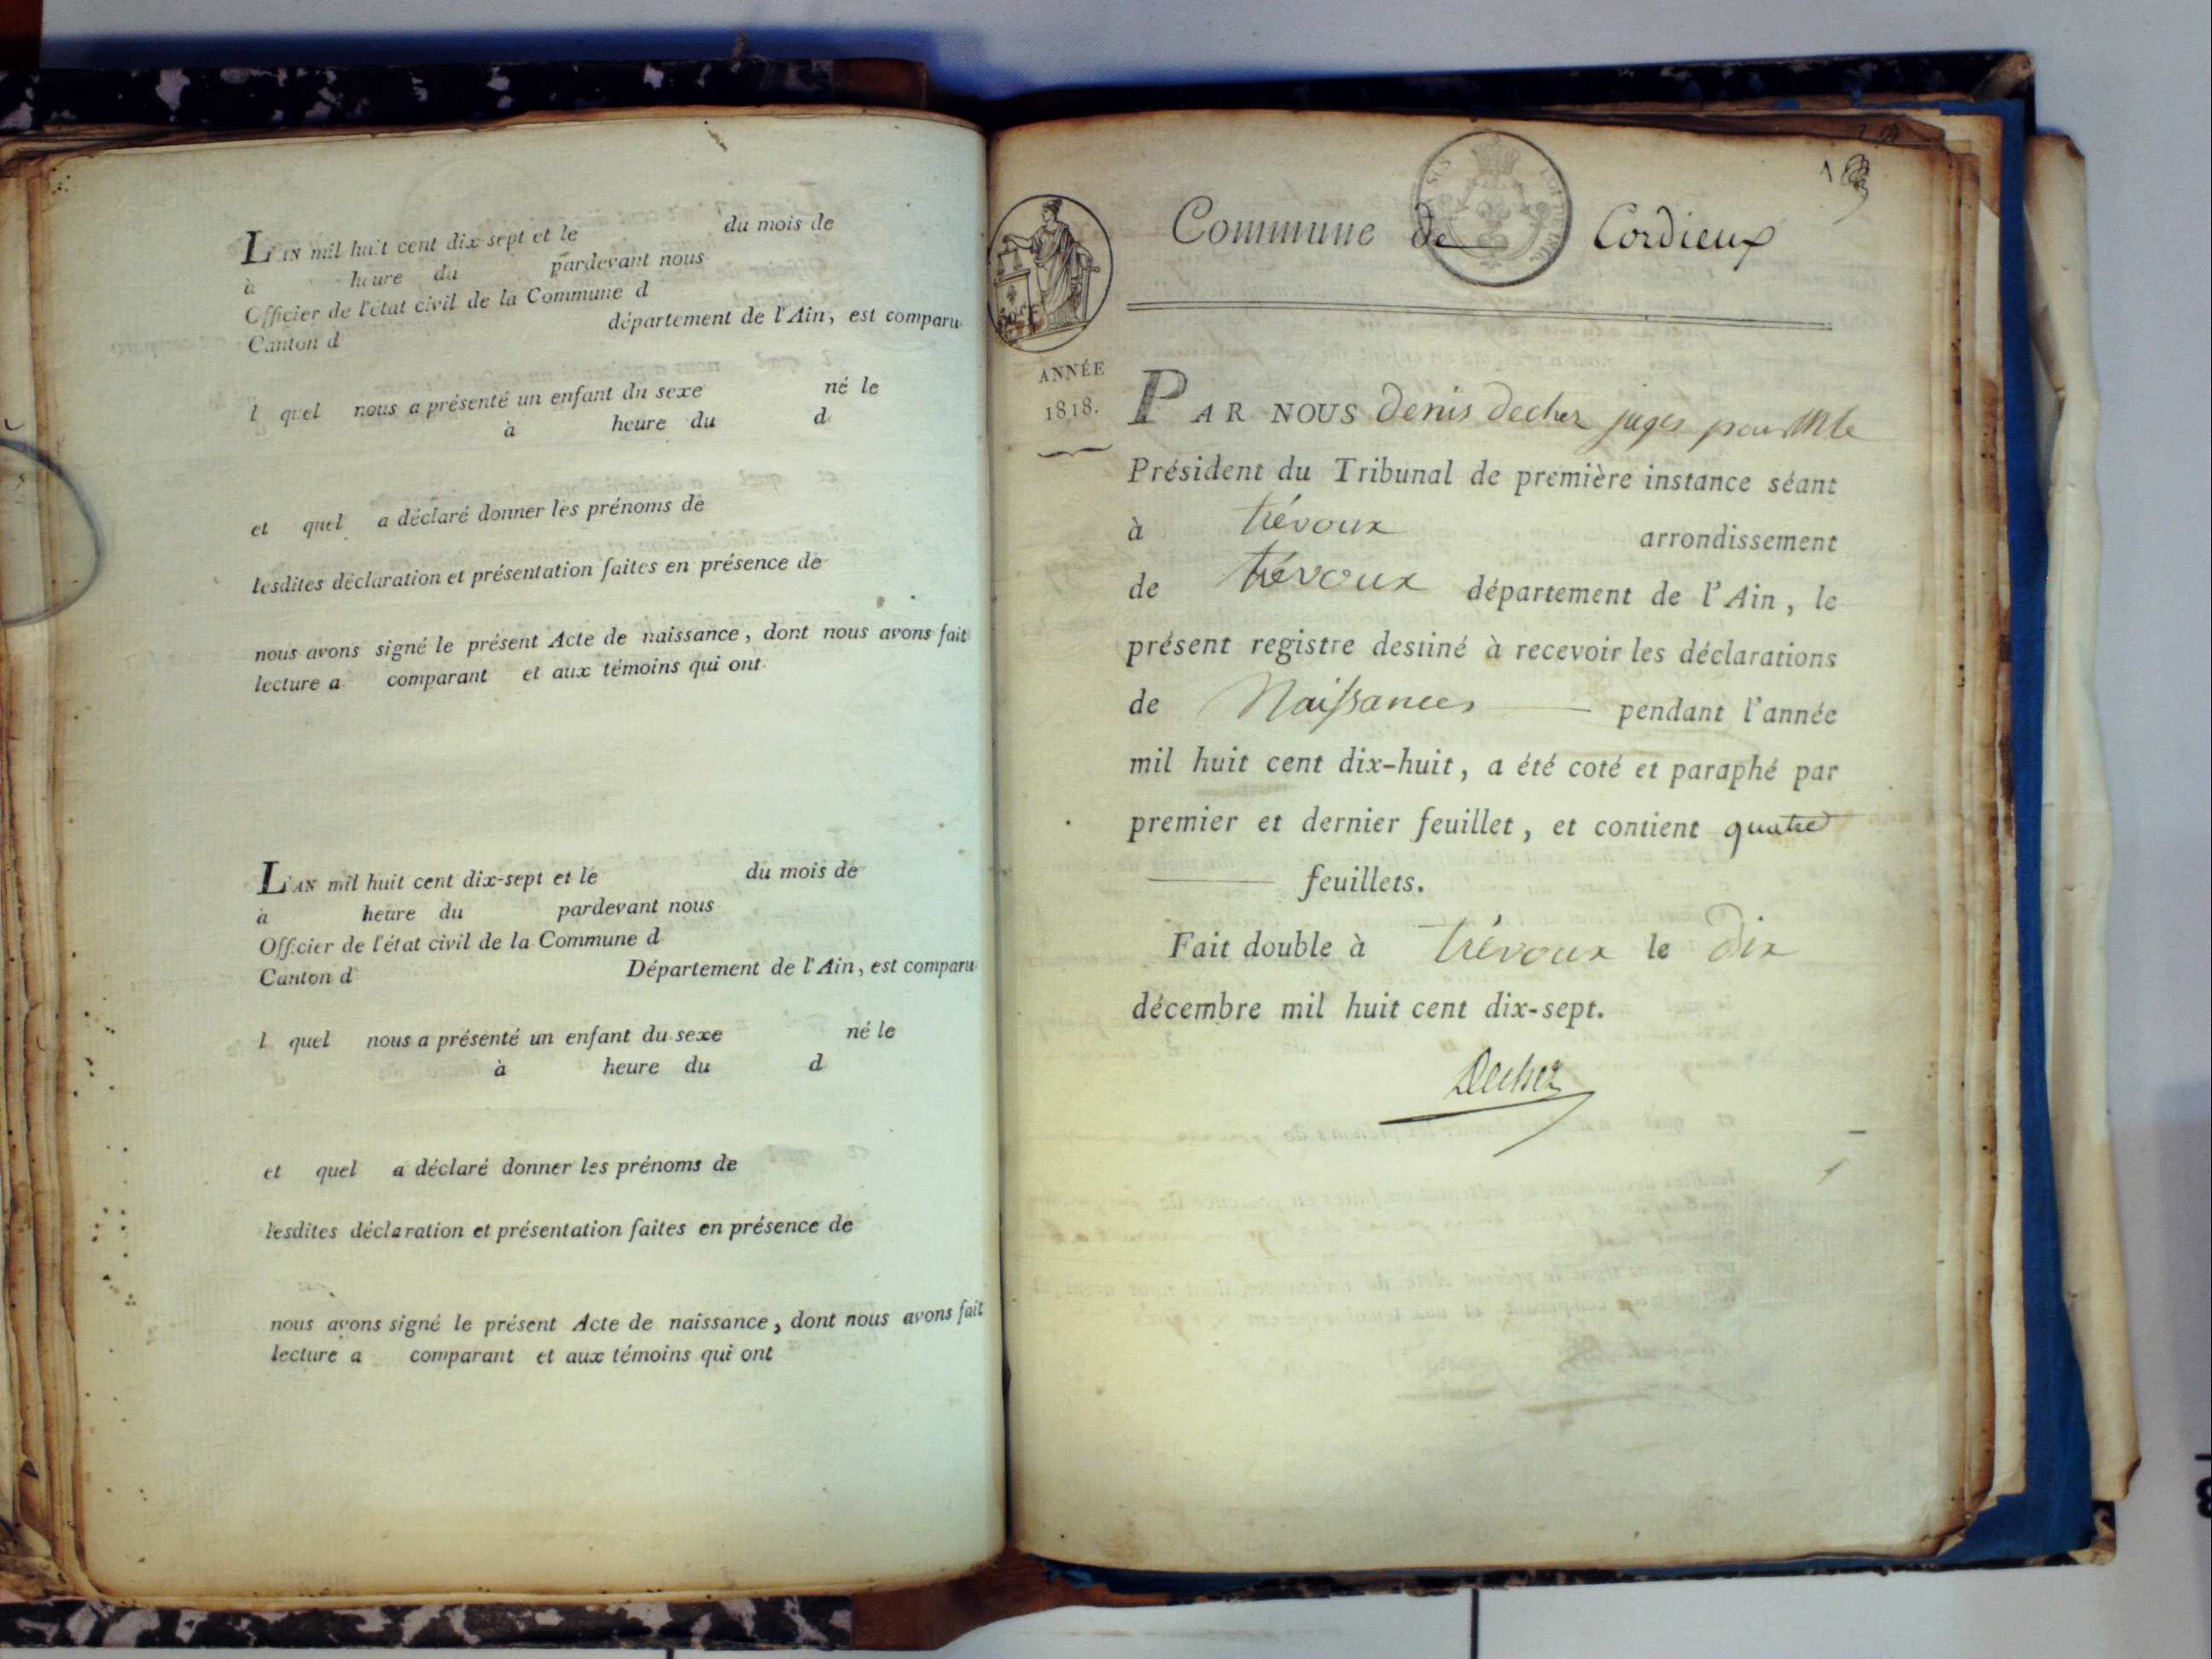 L'AN mil huit cent dix-sept et le du mois de
à heure du pardevant nous
Officier de l'état civil de la Commune d
Canton d département de l'Ain, est comparu
l quel nous a présenté un enfant du sexe né le
à heure du d
et quel a déclaré donner les prénoms de
lesdites déclaration et présentation faites en présence de
nous avons signé le présent Acte de naissance, dont nous avons fait
lecture a comparant et aux témoins qui ont
L'AN mil huit cent dix-sept et le du mois de
à heure du pardevant nous
Officier de l'état civil de la Commune d
Canton d Département de l'Ain, est comparu
l quel nous a présenté un enfant du sexe né le
à heure du d
et quel a déclaré donner les prénoms de
lesdites déclaration et présentation faites en présence de
nous avons signé le présent Acte de naissance, dont nous avons fait
lecture a comparant et aux témoins qui ont
Commune de Cordieux
ANNÉE
1818.
PAR NOUS denis decher juges pour
Président du Tribunal de première instance séant
à trévoux arrondissement
de trévoux département de l'Ain, le
présent registre destiné à recevoir les déclarations
de Naissances pendant l'année
mil huit cent dix-huit, a été coté et paraphé par
premier et dernier feuillet, et contient quatre
feuillets.
Fait double à trévoux le dix
décembre mil huit cent dix-sept.
Decher